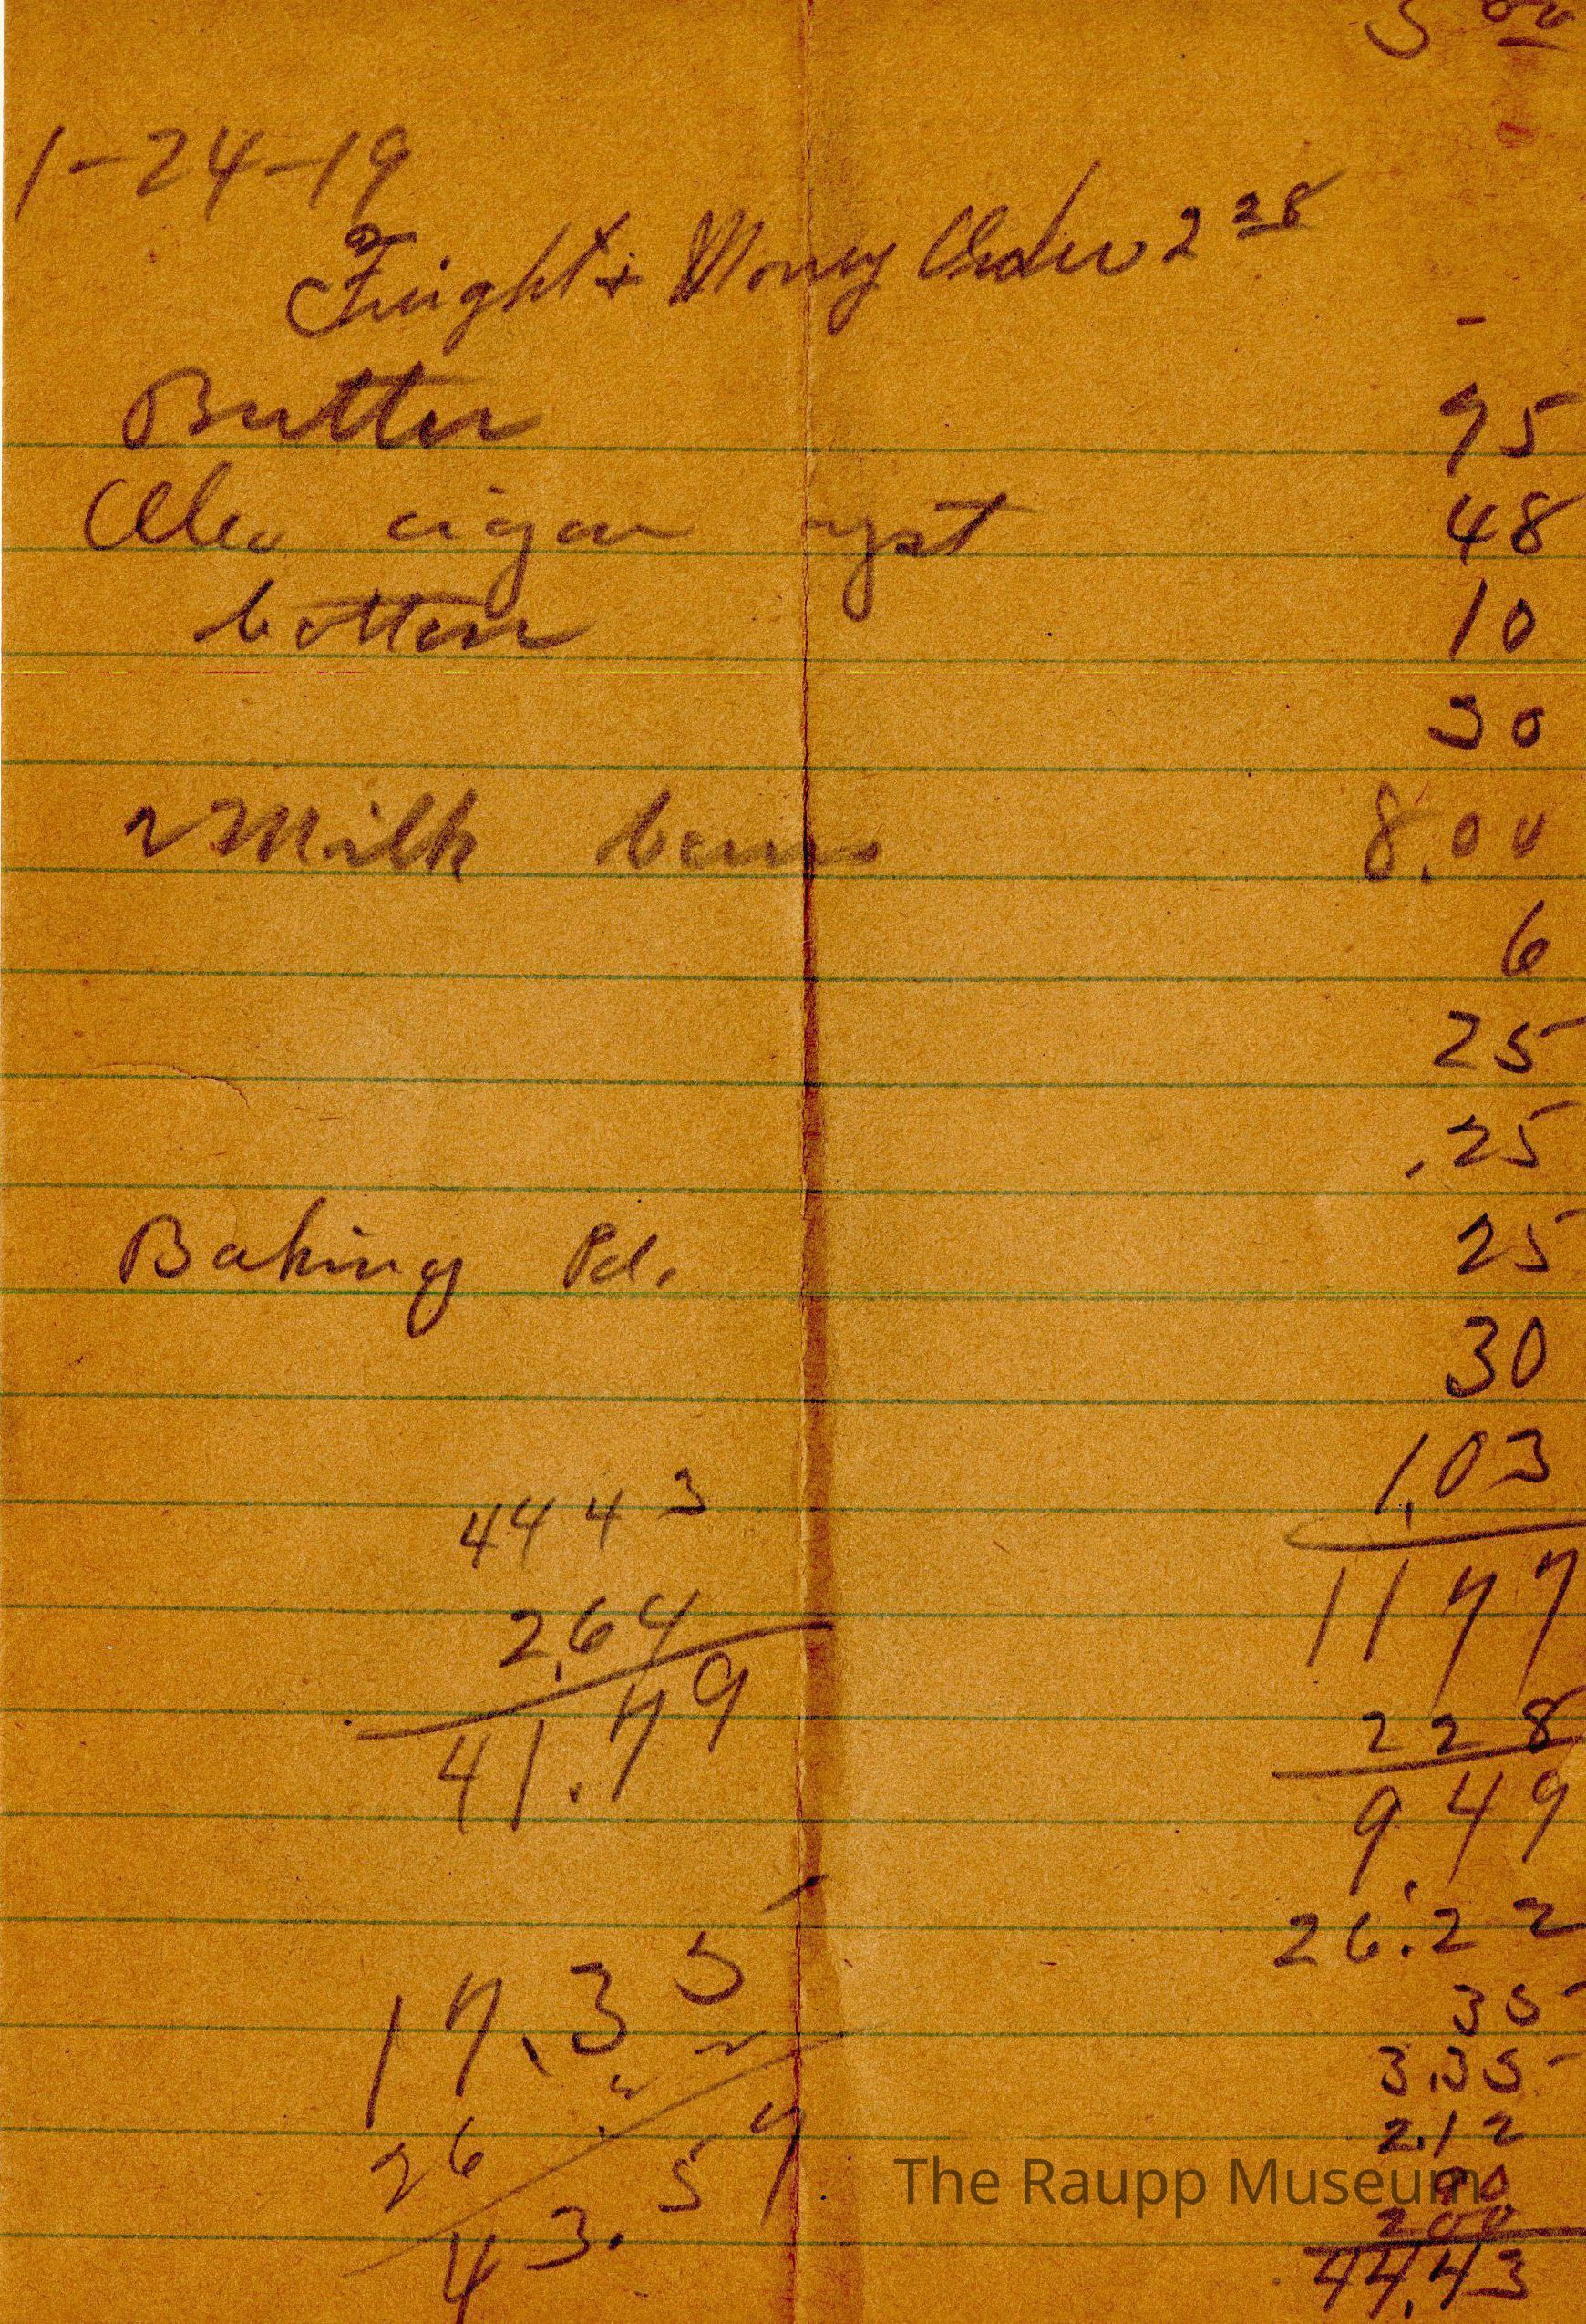 5 00
1-24-19
Freight + Money Order 2 28
Butter 95
cigar yst 48
10
30
2 Milk 8.00
6
25
.25
Baking Pd. 25
30
1.03
4443
1177
2.64
228
41.79
9.49
26.22
17.35
35
3.35
26 22
2.12
43.57
90
200
44.43
The Raupp Museum